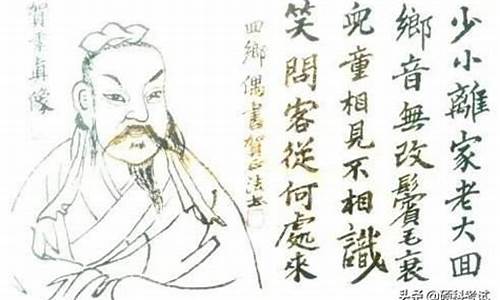 少小離家老大回
鄉音無改鬢毛衰
兒童相見不相識
笑問客從何處來
回鄉偶書賀
賀季真像
头条@硕科考试